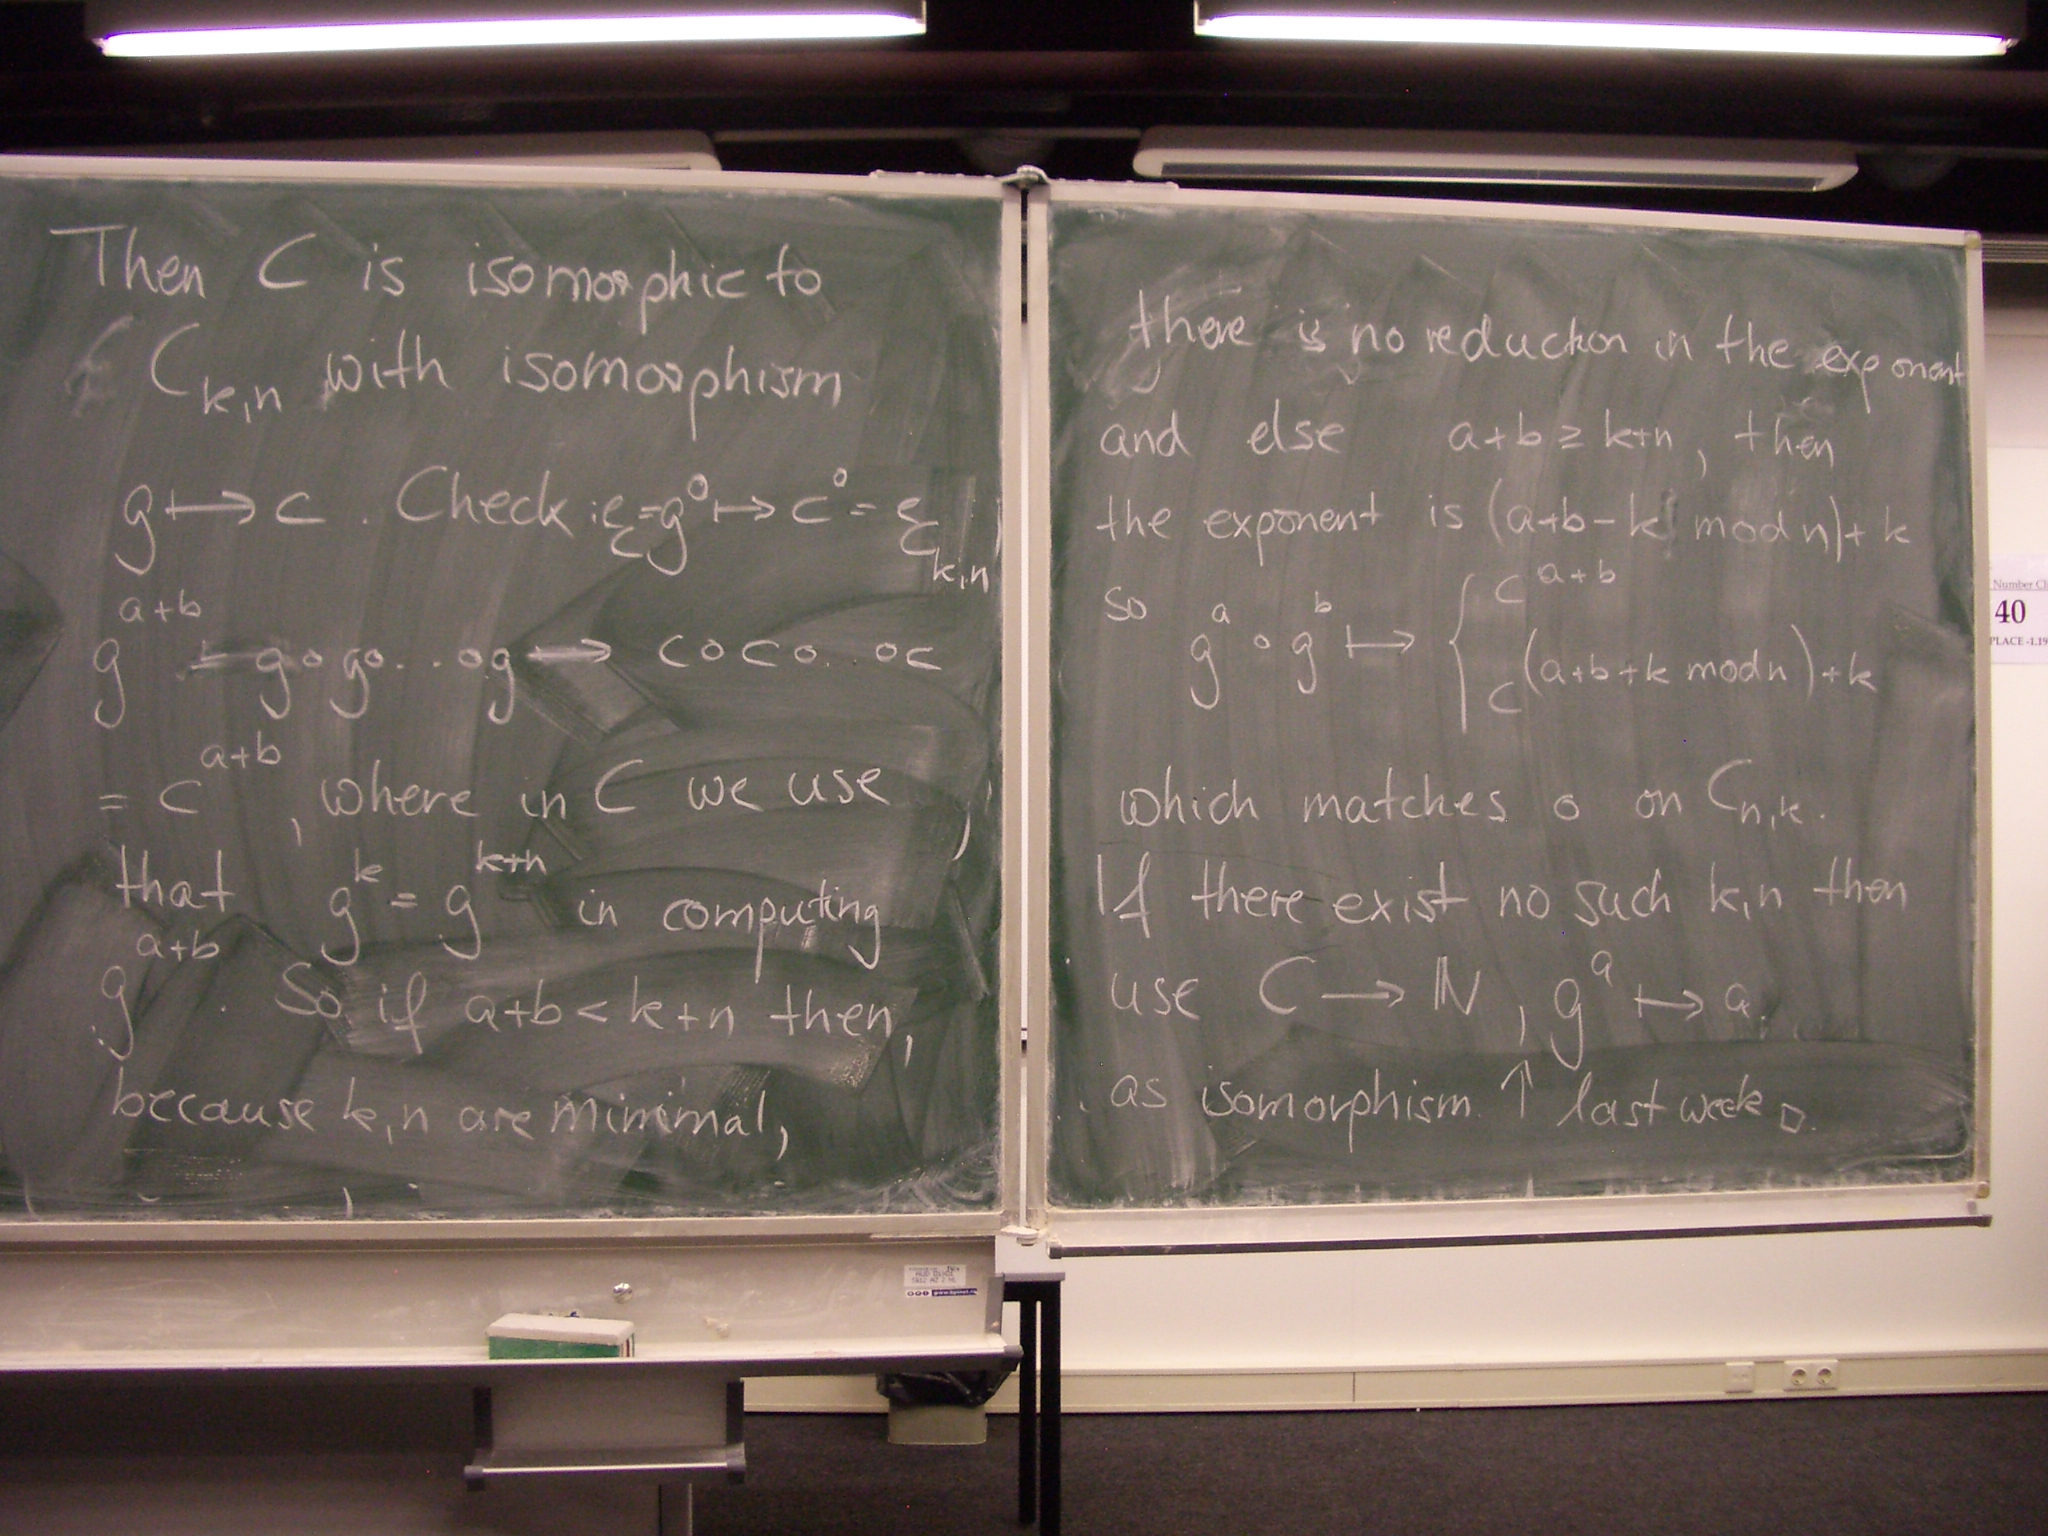 Then C is isomorphic to
C_{k,n} with isomorphism
g ↦ c. Check: ε = g^0 ↦ c^0 = ε_{k,n}
g^{a+b} = g∘g∘...∘g → c∘c∘...∘c
= c^{a+b}, where in C we use,
that g^k = g^{k+n} in computing
g^{a+b}. So if a+b < k+n then,
because k,n are minimal,
there is no reduction in the exponent
and else a+b ≥ k+n, then
the exponent is (a+b-k mod n)+k
so g^a ∘ g^b ↦ { c^{a+b}
c^{(a+b+k mod n)+k}
which matches ∘ on C_{n,k}.
If there exist no such k,n then
use C → ℕ, g^a ↦ a.
as isomorphism ↑ last week □.
Number
40
PLACE -1.19